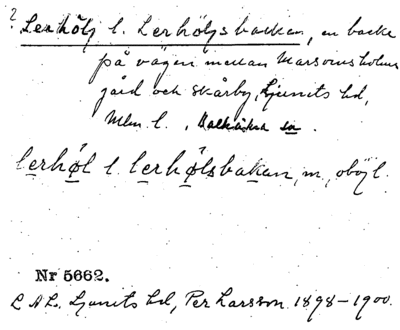 ? Lerhölj l. Lerhöljsbackan, en backe
på vägen mellan Marsvinsholms
gård och Skårby, Ljunits hd,
Mlm l., Balkåkra sn.
lerhøl l. lerhølsbakan, m., oböjl.
Nr 5662.
L A L. Ljunits hd, Per Larsson 1898-1900.